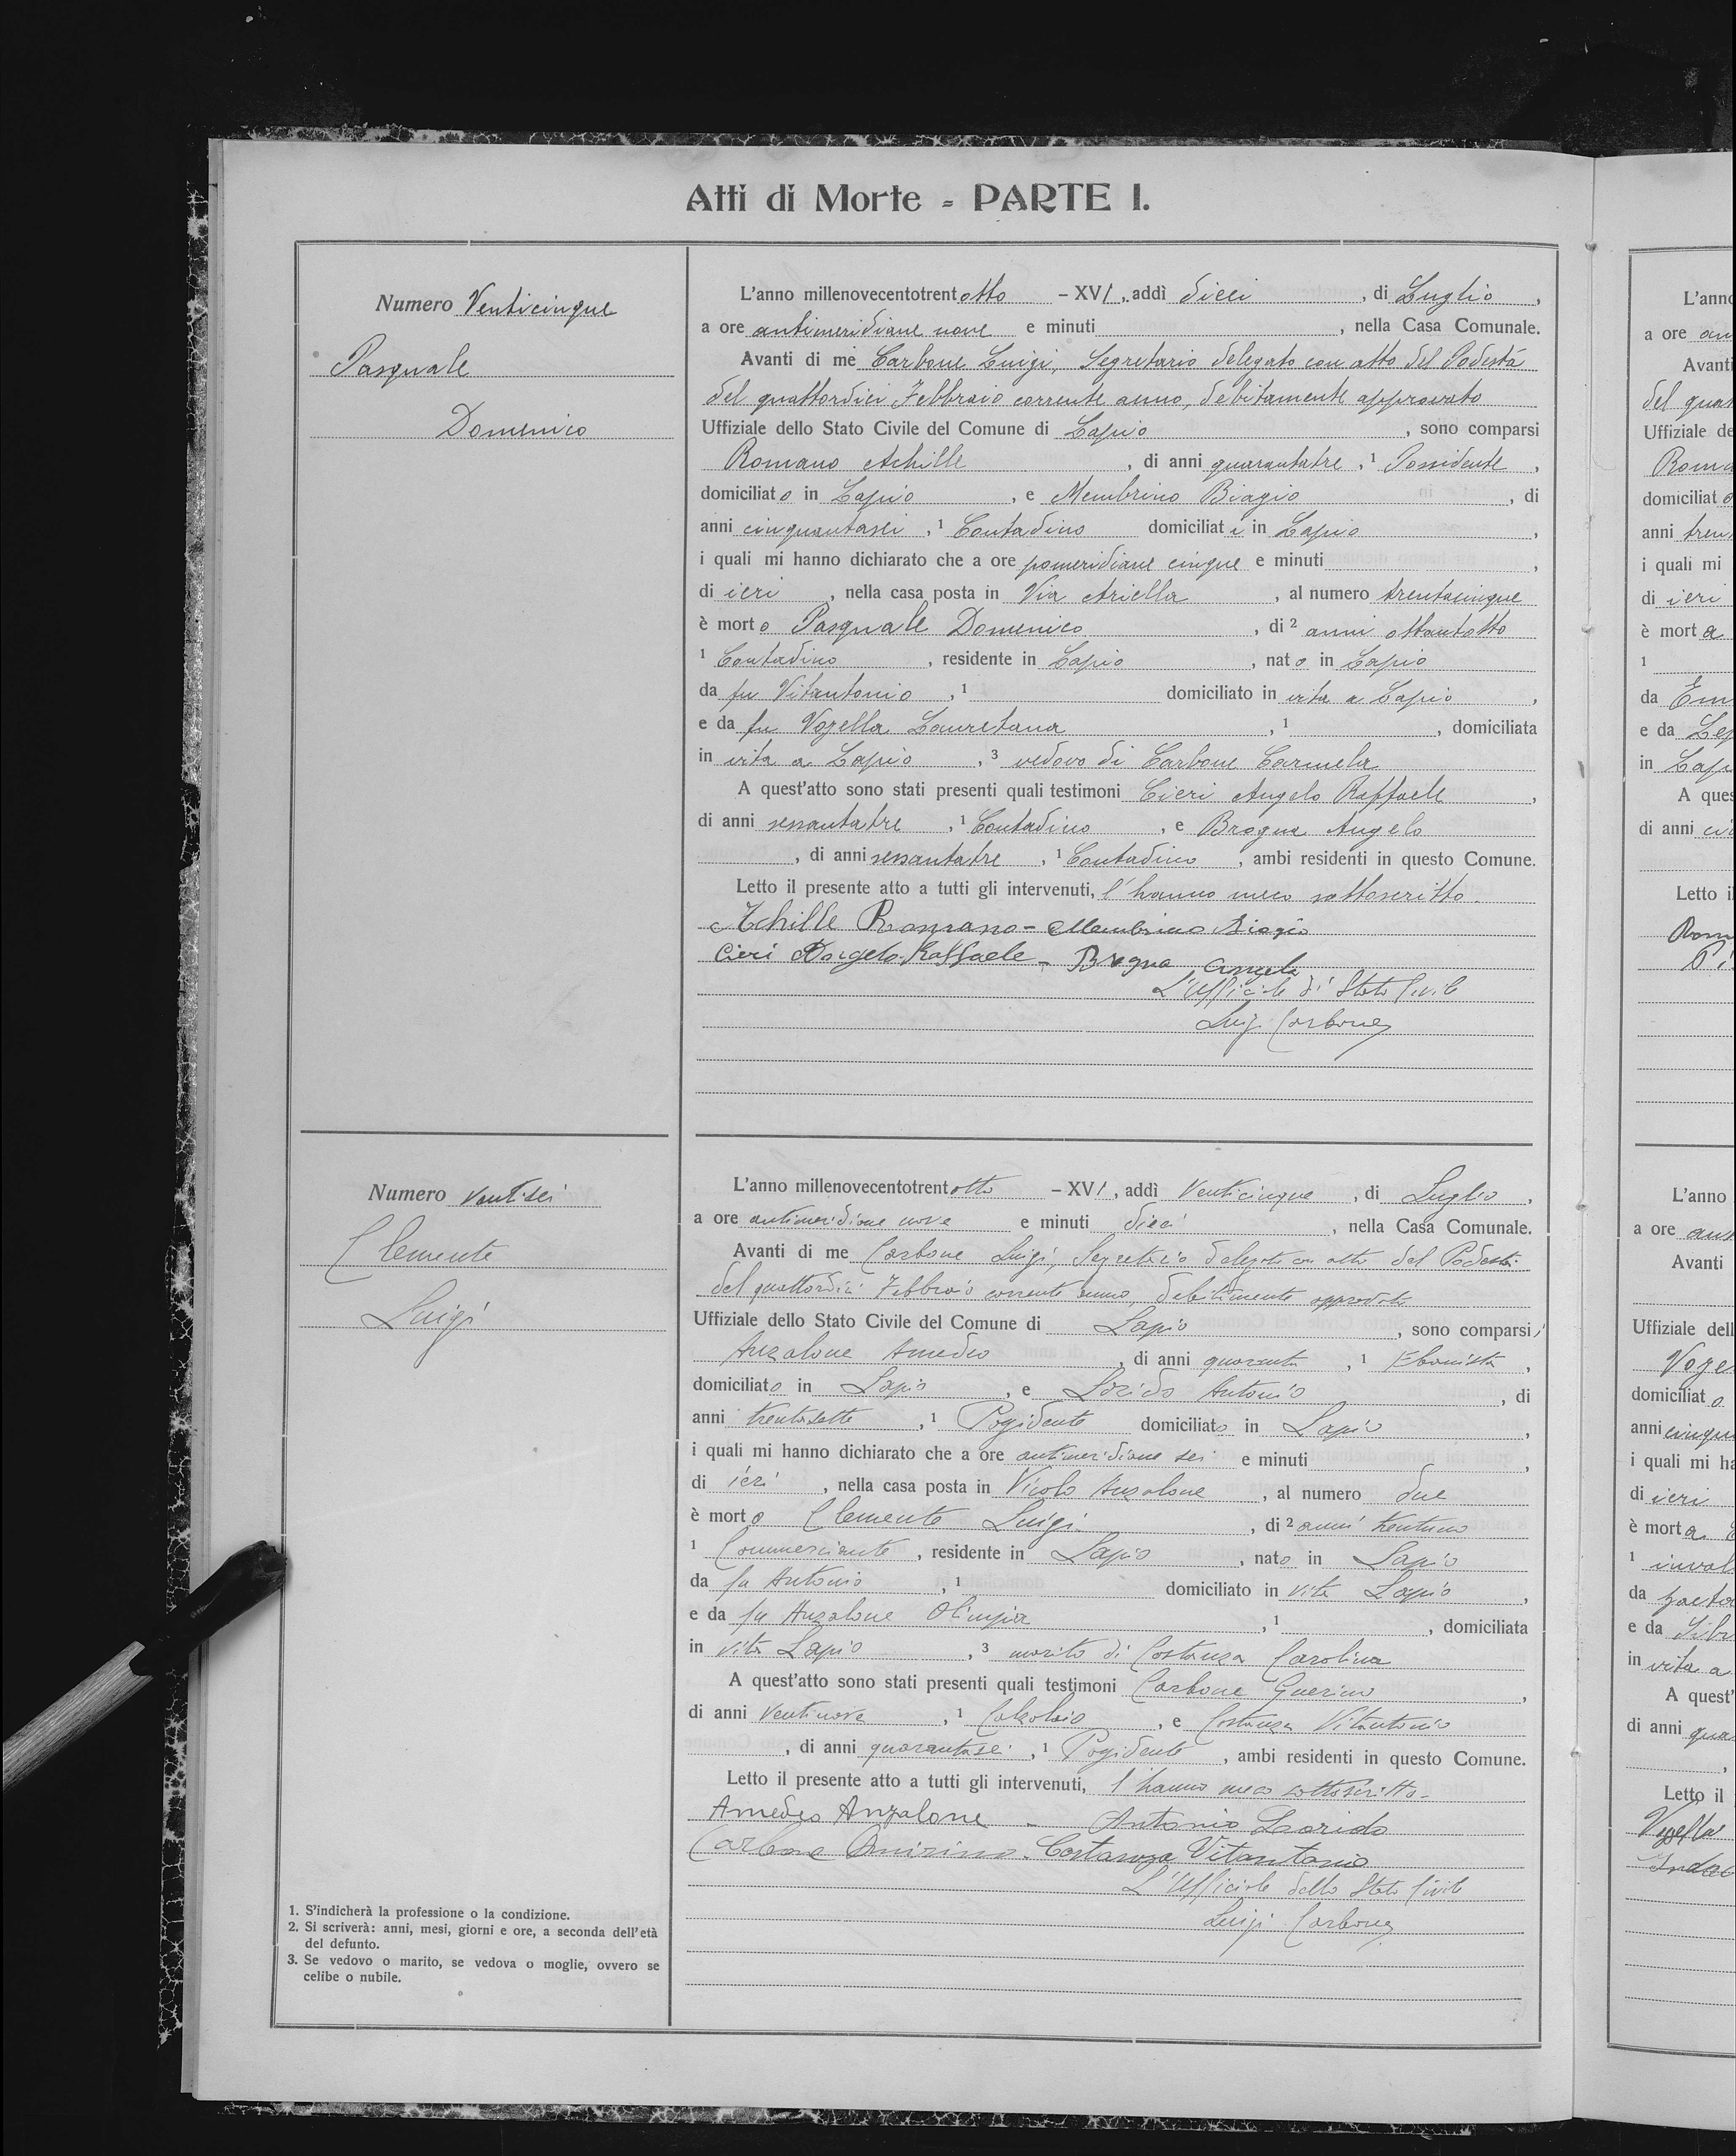 Atti di Morte - PARTE I.
Numero Venticinque
Pasquale
Domenico
L'anno millenovecentotrentotto - XVI, addì dieci, di Luglio,
a ore antimeridiane nove e minuti , nella Casa Comunale.
Avanti di me Carbone Luigi, Segretario delegato con atto del Podestà
del quattordici Febbraio corrente anno, debitamente approvato
Uffiziale dello Stato Civile del Comune di Lapio, sono comparsi
Romano Achille, di anni quarantatre, 1 Possidente,
domiciliato in Lapio, e Membrino Biagio, di
anni cinquantasei, 1 Contadino domiciliati in Lapio,
i quali mi hanno dichiarato che a ore pomeridiane cinque e minuti ,
di ieri, nella casa posta in Via Ariella, al numero trentacinque
è morto Pasquale Domenico, di 2 anni ottantotto
1 Contadino, residente in Lapio, nato in Lapio
da fu Vitantonio, 1 domiciliato in vita a Lapio,
e da fu Vozella Lauretana, 1 , domiciliata
in vita a Lapio, 3 vedovo di Carbone Carmela
A quest'atto sono stati presenti quali testimoni Cieri Angelo Raffaele,
di anni sessantatre, 1 Contadino, e Brogna Angelo
, di anni sessantatre, 1 Contadino, ambi residenti in questo Comune.
Letto il presente atto a tutti gli intervenuti, l'hanno meco sottoscritto.
Achille Romano - Membrino Biagio
Cieri Angelo Raffaele - Brogna Angelo
L'Ufficiale di Stato Civile
Luigi Carbone
Numero Ventisei
Clemente
Luigi
L'anno millenovecentotrentotto - XVI, addì Venticinque, di Luglio,
a ore antimeridiane nove e minuti dieci, nella Casa Comunale.
Avanti di me Carbone Luigi, Segretario delegato con atto del Podestà
del quattordici Febbraio corrente anno, debitamente approvato
Uffiziale dello Stato Civile del Comune di Lapio, sono comparsi
Anzalone Amedeo, di anni quaranta, 1 Ebanista,
domiciliato in Lapio, e Lorido Antonio, di
anni trentasette, 1 Possidente domiciliato in Lapio,
i quali mi hanno dichiarato che a ore antimeridiane sei e minuti ,
di ieri, nella casa posta in Vicolo Anzalone, al numero due
è morto Clemente Luigi, di 2 anni trentuno
1 Commerciante, residente in Lapio, nato in Lapio
da fu Antonio, 1 domiciliato in vita Lapio,
e da fu Anzalone Olimpia, 1 , domiciliata
in vita Lapio, 3 marito di Costanza Carolina
A quest'atto sono stati presenti quali testimoni Carbone Guerino,
di anni Ventinove, 1 Calzolaio, e Costanza Vitantonio
, di anni quarantasei, 1 Possidente, ambi residenti in questo Comune.
Letto il presente atto a tutti gli intervenuti, l'hanno meco sottoscritto.
Amedeo Anzalone - Antonio Lorido
Carbone Guirino - Costanza Vitantonio
L'Ufficiale dello Stato Civile
Luigi Carbone
1. S'indicherà la professione o la condizione.
2. Si scriverà: anni, mesi, giorni e ore, a seconda dell'età
del defunto.
3. Se vedovo o marito, se vedova o moglie, ovvero se
celibe o nubile.
L'anno
a ore
Avanti
del
Uffiziale
domiciliato
anni
i quali mi
di ieri
è morta
1
da
e da
in
A
di anni
Letto
L'anno
a ore
Avanti
Uffiziale
domiciliato
anni
i quali mi
di ieri
è morta
1
da
e da
in vita a
A
di anni
Letto il